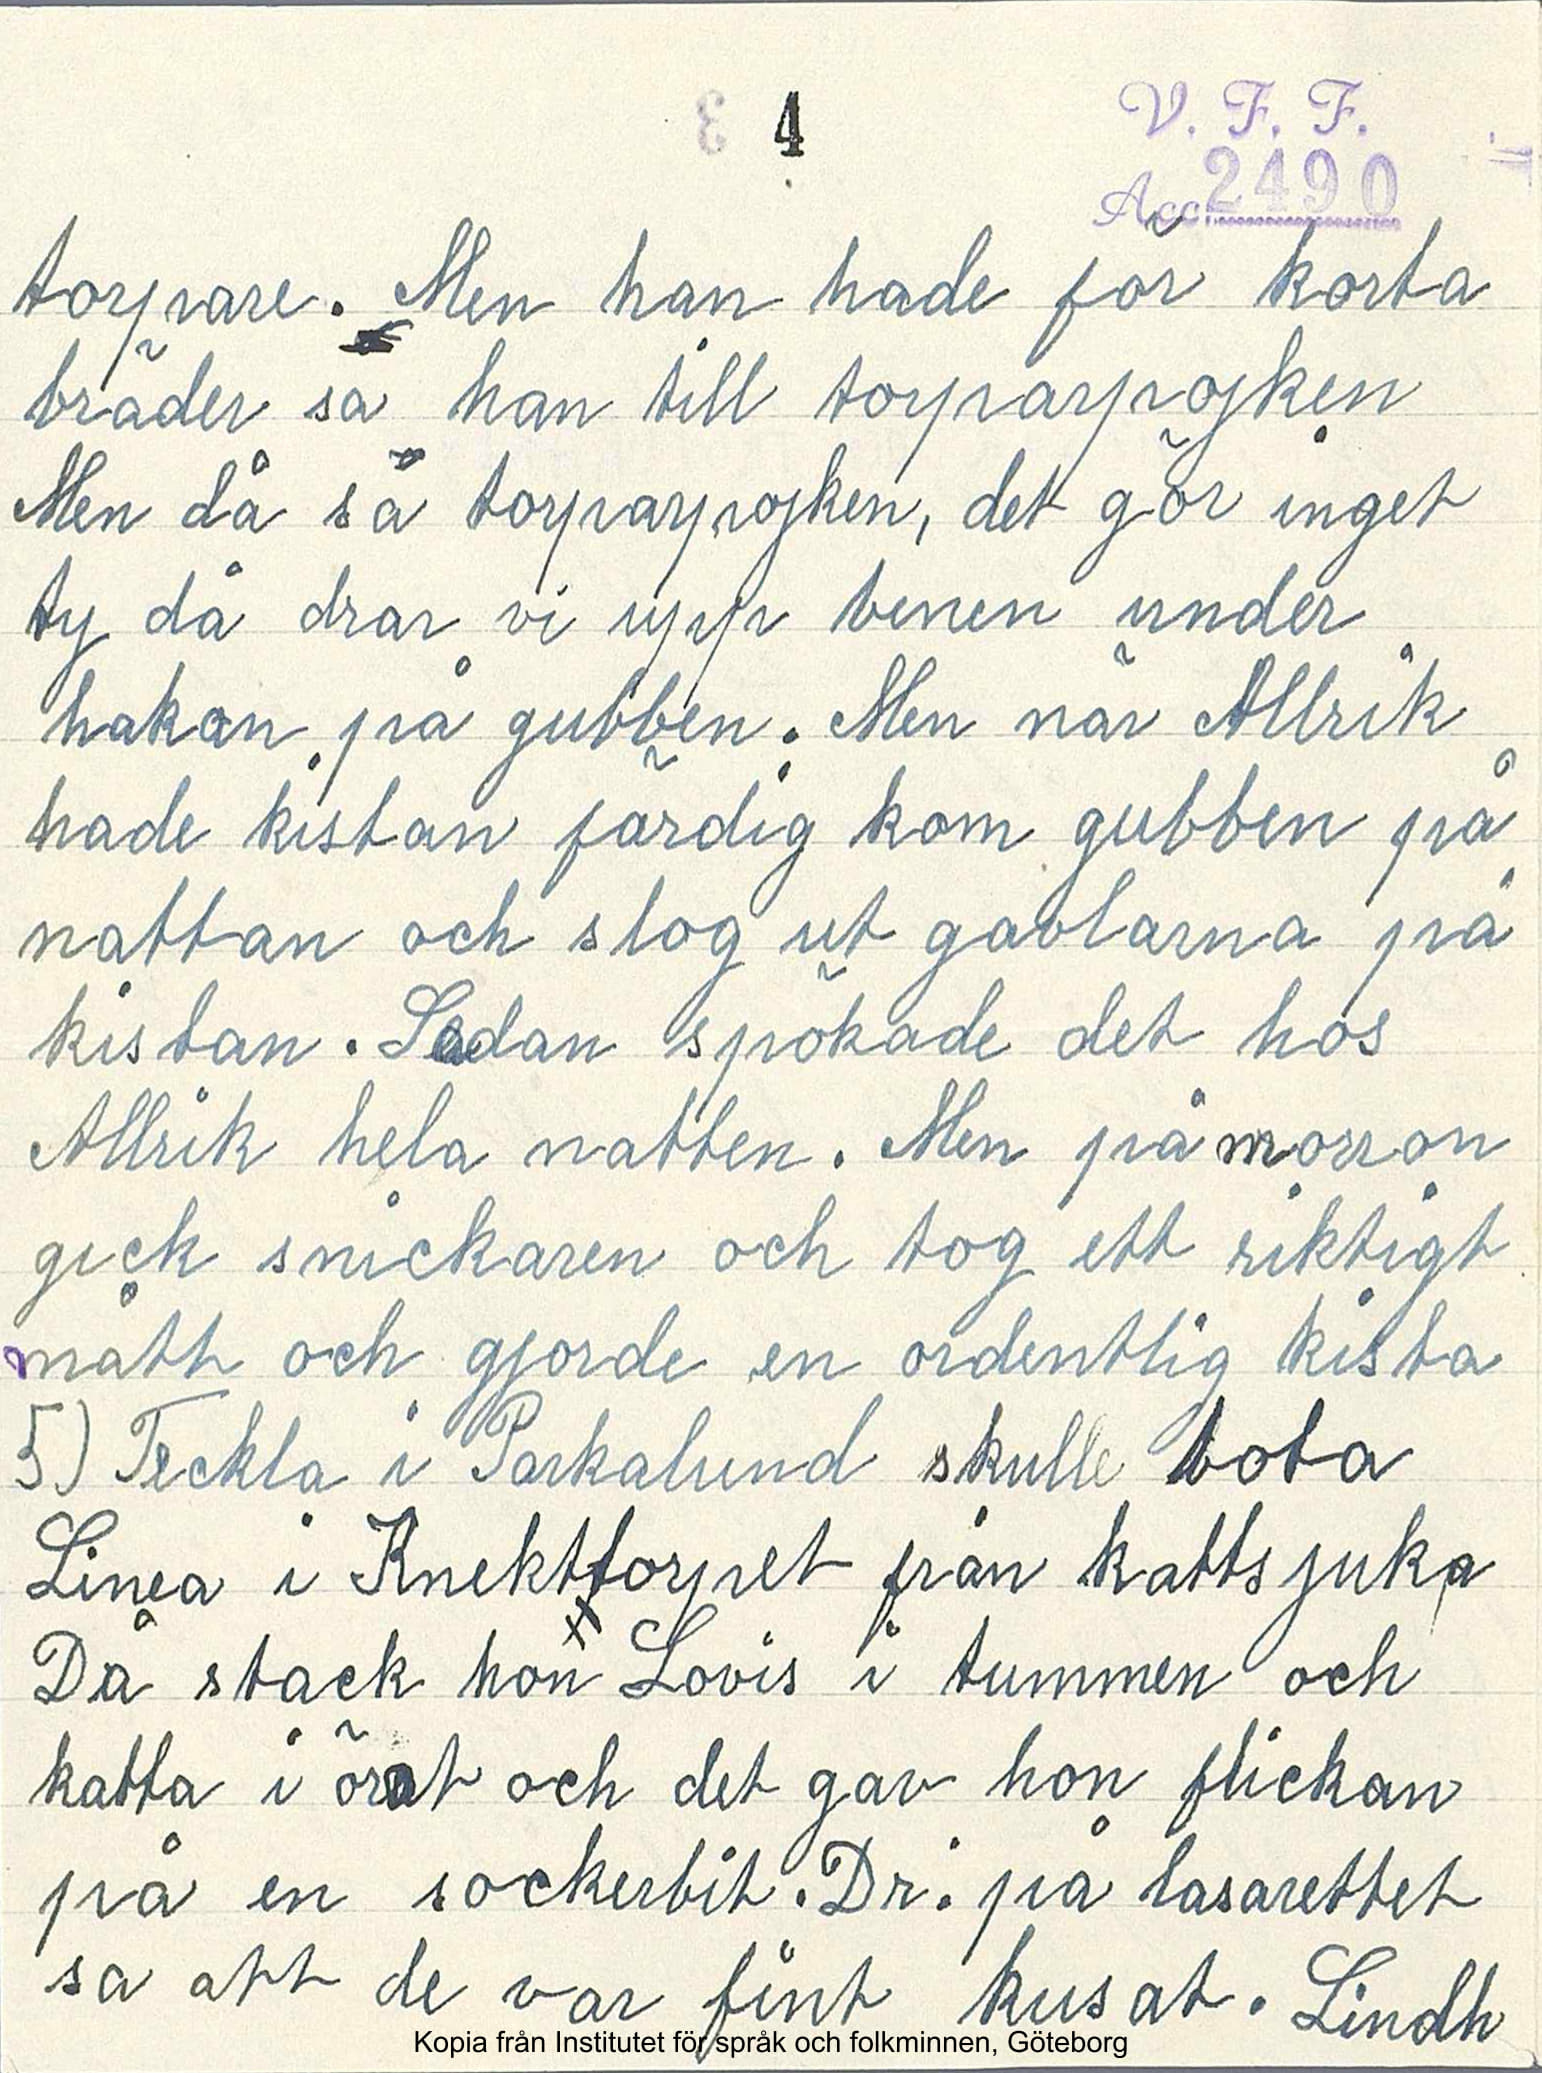 4
V. F. F.
Acc 2490
torpare. Men han hade för korta
bräder sa han till torparpojken
Men då sa torparpojken, det gör inget
ty då drar vi upp benen under
hakan på gubben. Men når Allrik
hade kistan färdig kom gubben på
nattan och slog ut gavlarna på
kistan. Sedan spökade det hos
Allrik hela natten. Men på morron
gick snickaren och tog ett riktigt
mått och gjorde en ordentlig kista
5) Teckla i Parkalund skulle bota
Linea i Knekttorpet från kattsjuka
Då stack hon Lovis i tummen och
katta i örat och det gav hon flickan
på en sockerbit. Dr. på lasarettet
sa att de var fint kusat. Lindh
Kopia från Institutet för språk och folkminnen, Göteborg